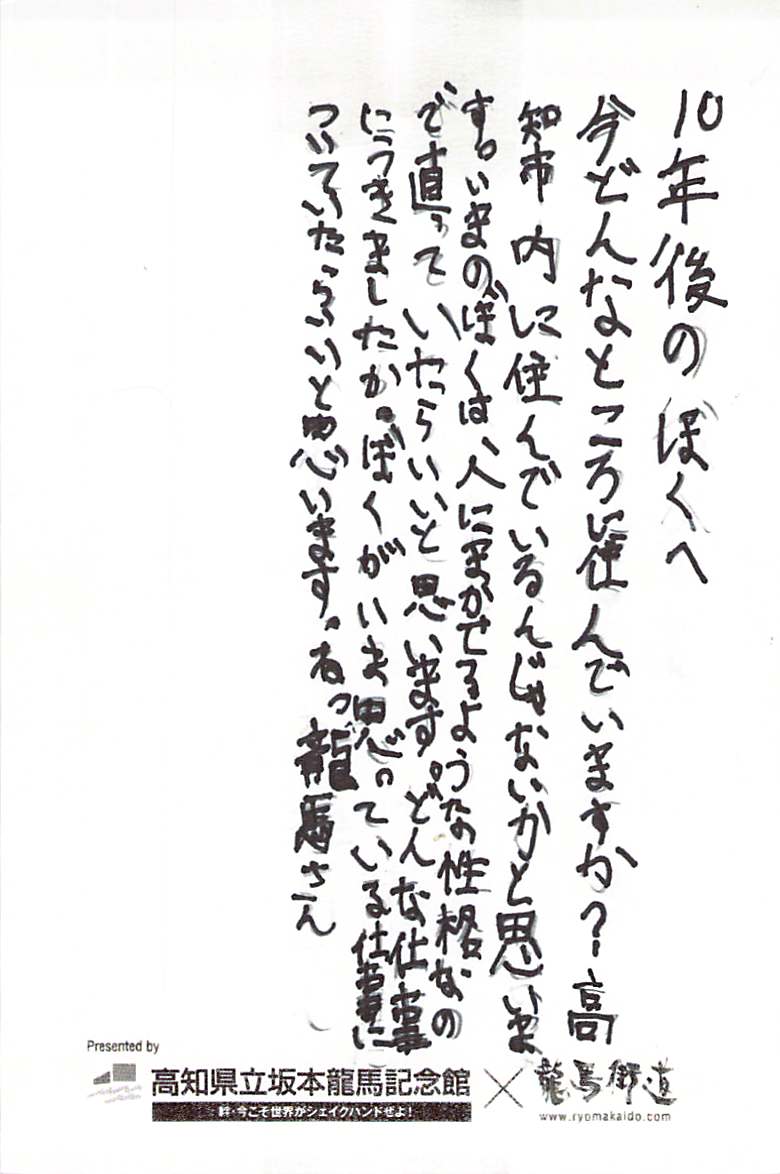 10年後のぼくへ
今どんなところに住んでいますか？高
知市内に住んでいるんじゃないかと思いま
す。いまのぼくは、人にまかせるような性格なの
で直っていたらいいと思います。どんな仕事
につきましたか。ぼくがいま思っている仕事に
ついていたらいいと思います。ねっ龍馬さん
Presented by
高知県立坂本龍馬記念館
絆・今こそ世界がシェイクハンドぜよ！
×
龍馬街道
www.ryomakaido.com